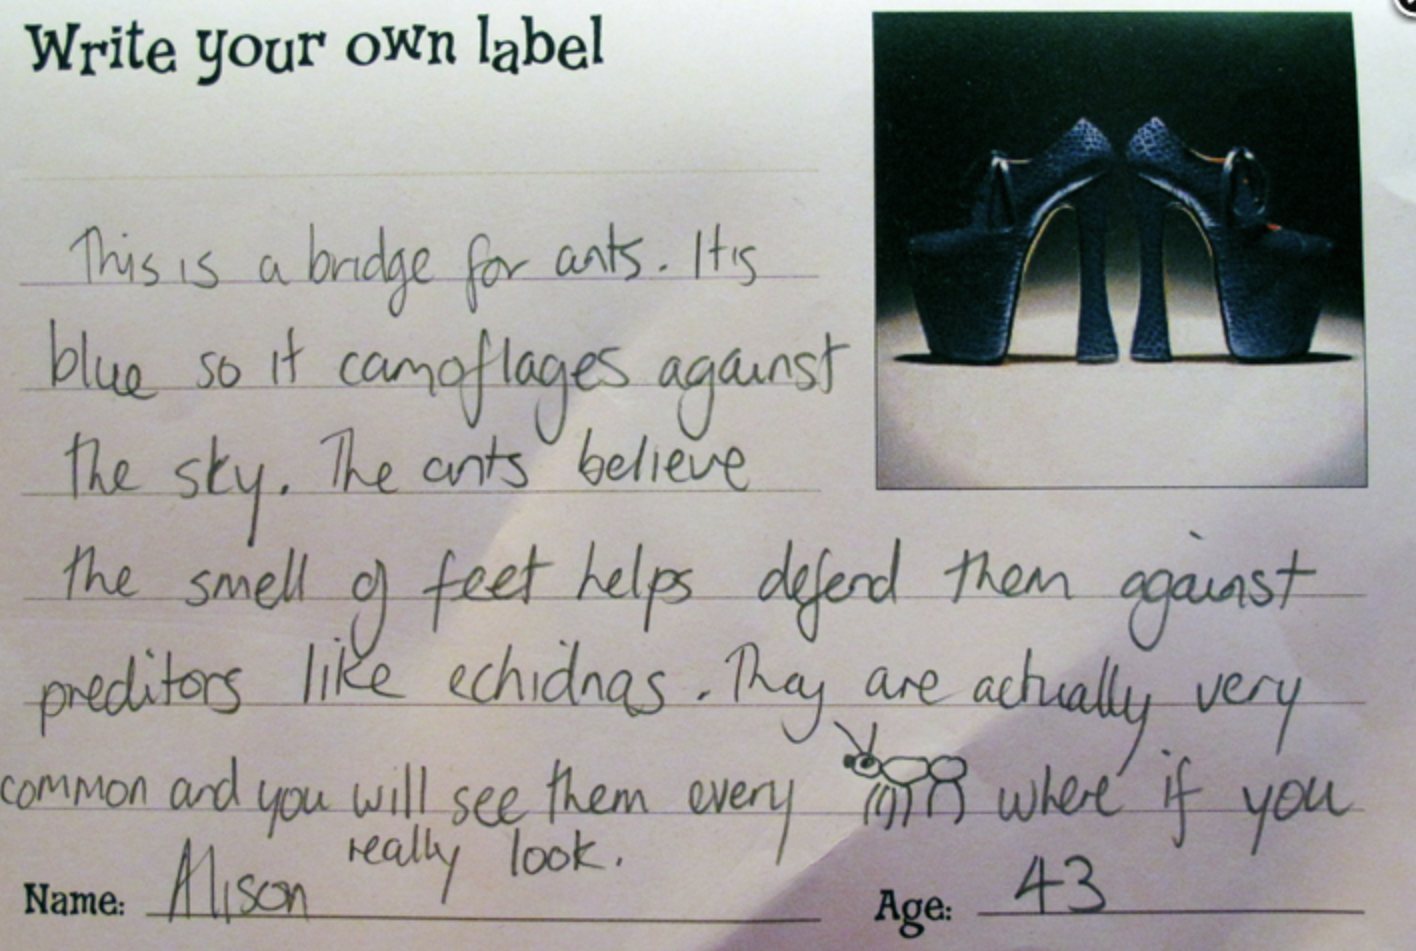 Write your own label
This is a bridge for ants. It is
blue so it camoflages against
the sky. The ants believe
the smell of feet helps defend them against
preditors like echidnas. They are actually very
common and you will see them every where if you
really look.
Name: Alison Age: 43